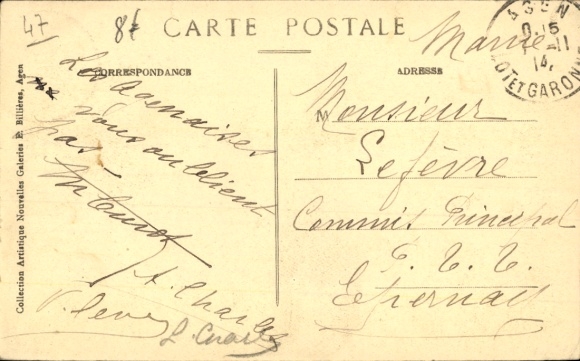 47
8f
CARTE POSTALE
AGEN
0.15
-11
14
LOT ET GARONNE
Marne
CORRESPONDANCE
Les Agenaises
ne vous oublient
pas
A. Charles
ADRESSE
Monsieur
Lefèvre
Commis Principal
P. T. T.
Epernay
Collection Artistique Nouvelles Galeries P. Billières, Agen